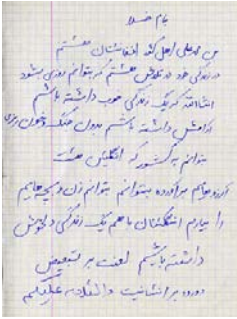 بنام خدا
من محمد علی اهل کشور افغانستان هستم
در زندگی خود در تلاش هستم که بتوانم روزی بشود
انشاالله که یک زندگی خوب داشته باشم
آرامش داشته باشم بدون جنگ و خون ریزی
بتوانم به کشور که انگلیس هست
آرزوهایم برآورده بتوانم بتوانم زن و بچه هایم
را بیارم انگلستان با هم یک زندگی خوش
داشته باشیم لعنت بر تبعیض
درود بر انسانیت والسلام علیکم